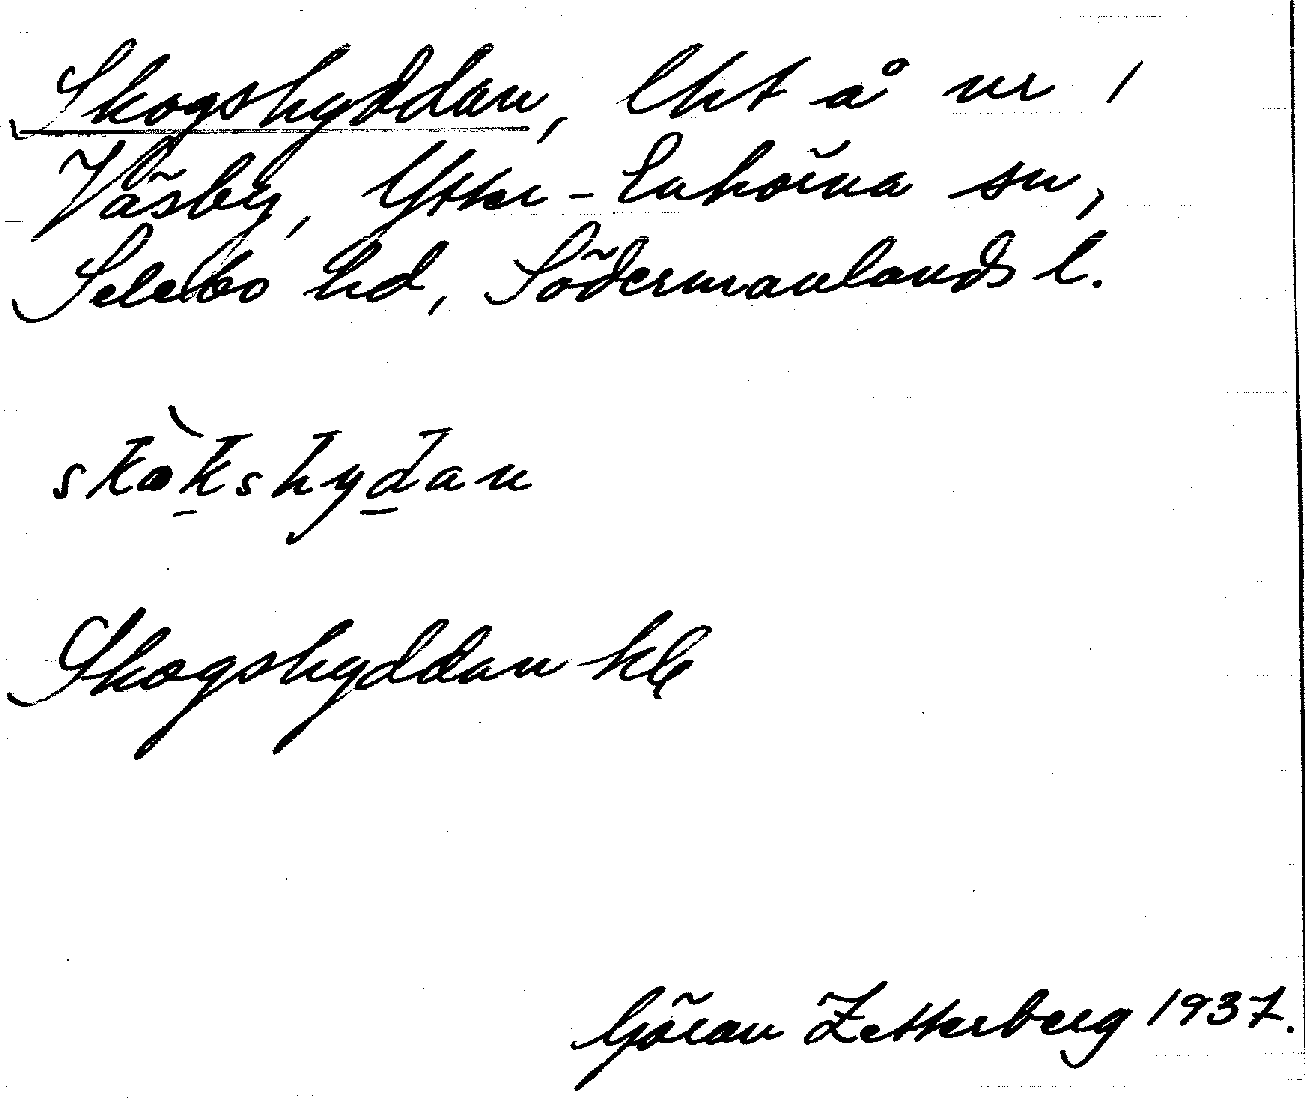 Skogshyddan, lht å nr 1
Väsby, Ytter-Enhörna sn,
Selebo hd, Södermanlands l.
skòkshydan
Skogshyddan kłę
Göran Zetterberg 1937.